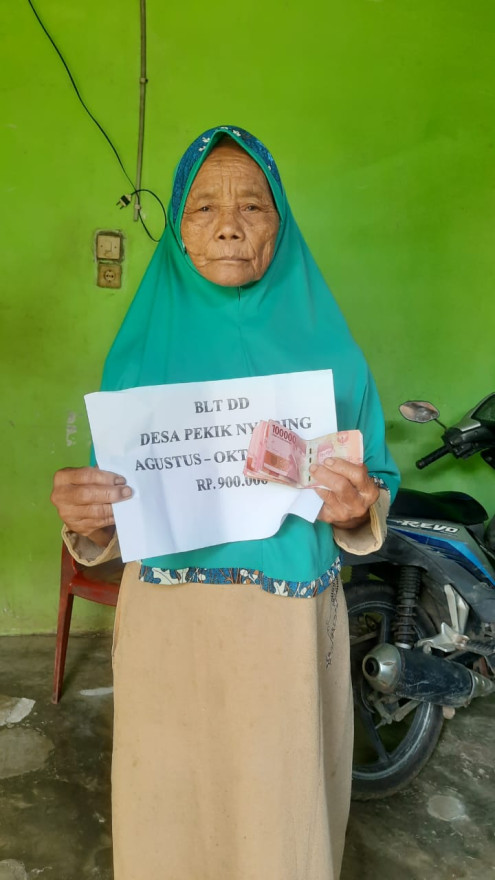 BLT DD
DESA PEKIK
AGUSTUS – OKT
RP. 900.000
100000
REVO